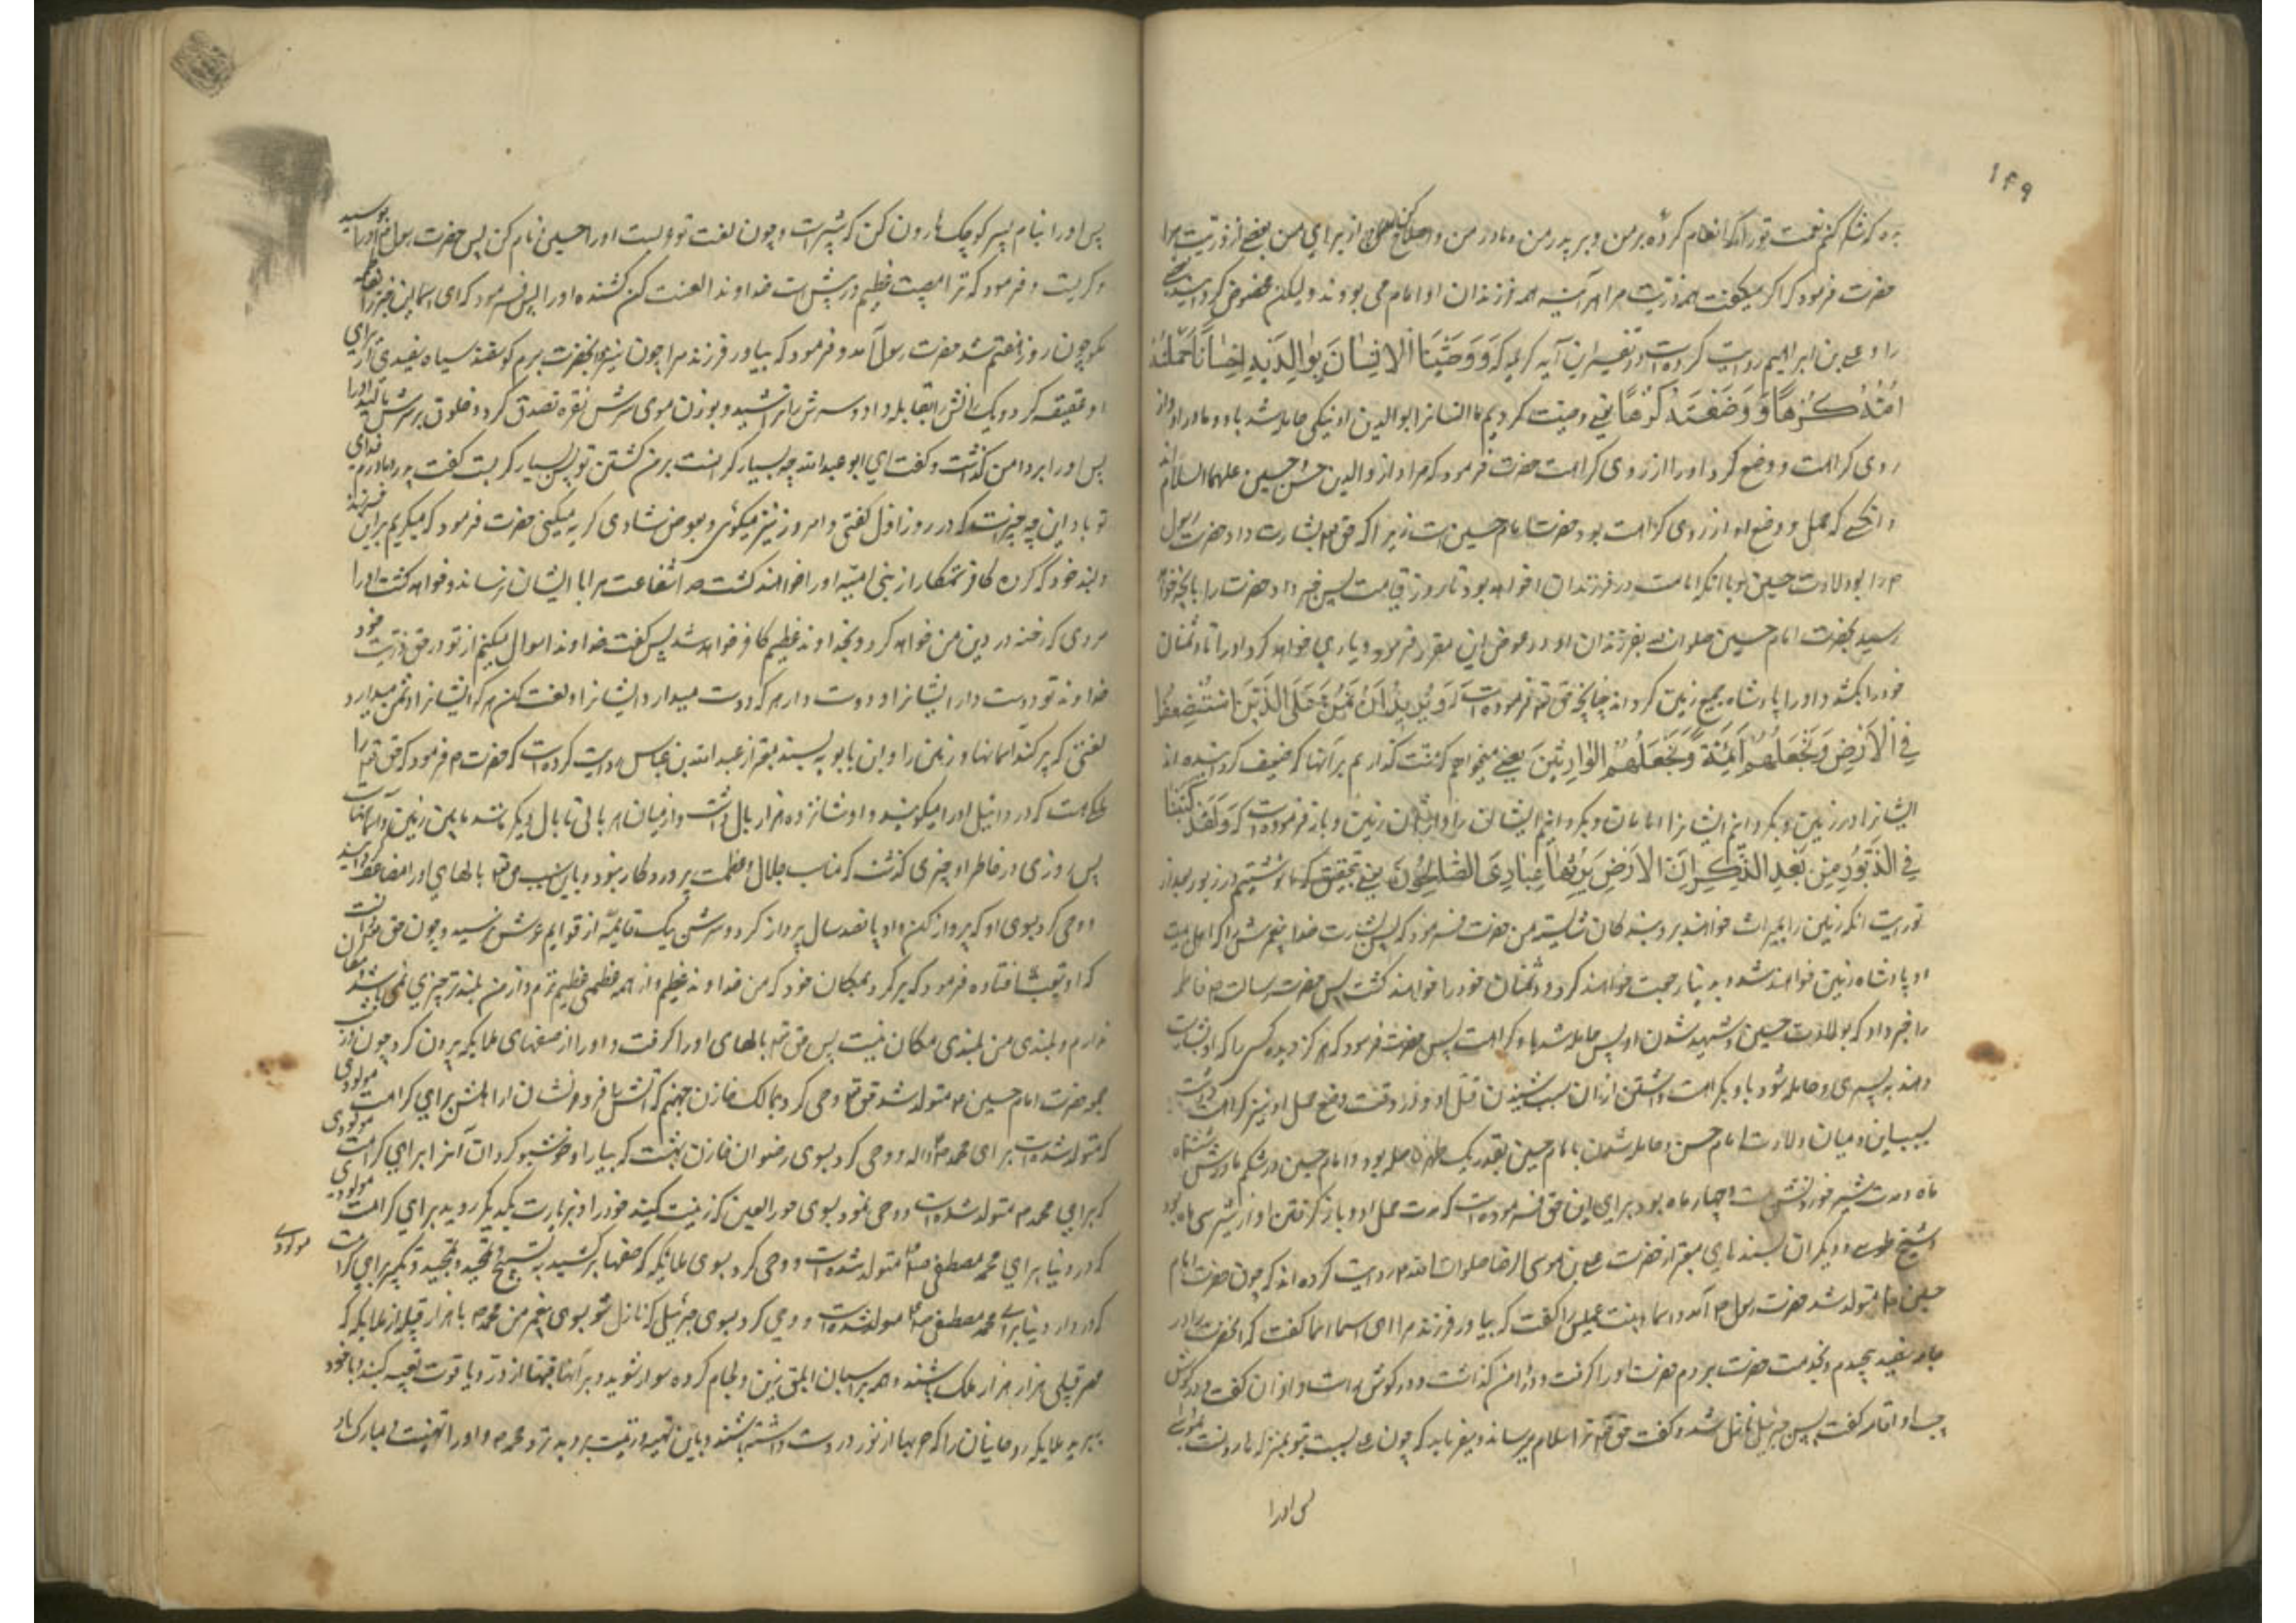 ۱۴۹
بده که شکر کنم نعمت تو را که انعام کردهٔ بر من و بر پدر من و مادر من و اصلاح کن از برای من بعضی از ذریت مرا
حضرت فرمود که اگر میگفت همه ذریت مرا هر آینه همه فرزندان او امام می بودند ولیکن مخصوص گردانید
را و علی بن ابراهیم روایت کرده است در تفسیر این آیه کریمه که وَوَصَّيْنَا الْاِنْسَانَ بِوَالِدَيْهِ اِحْسَاناً حَمَلَتْهُ
اُمُّهُ كُرْهاً وَ وَضَعَتْهُ كُرْهاً یعنی وصیت کردیم ما انسانرا بوالدین او نیکی حامله شد باو مادر او از
روی کراهت و وضع کرد او را از روی کراهت حضرت فرمود که مراد از والدین حسن و حسین علیهما السلام
و آنکسی که حمل و وضع او از روی کراهت بود حضرت امام حسین است زیرا که حق تعالی بشارت داد حضرت رسول
را بولادت حسین و بآنکه امامت در فرزندان او خواهد بود تا روز قیامت پس خبر داد حضرت را بآنچه خواهد
رسید بحضرت امام حسین و بفرزندان او در عوض این مقرر فرمود و یاری خواهد کرد او را تا دشمنان
خود را بکشد و او را پادشاه جمیع زمین گرداند چنانچه حق تعالی فرموده است که وَ نُرِيدُ اَنْ نَمُنَّ عَلَى الَّذِينَ اسْتُضْعِفُوا
فِي الْاَرْضِ وَ نَجْعَلَهُمْ اَئِمَّةً وَ نَجْعَلَهُمُ الْوَارِثِينَ یعنی میخواهیم که منت گذاریم بر آنها که ضعیف گردانیده اند
ایشانرا در زمین و بگردانیم ایشانرا امامان و بگردانیم ایشان را وارثان زمین و باز فرموده است که وَ لَقَدْ كَتَبْنَا
فِي الزَّبُورِ مِنْ بَعْدِ الذِّكْرِ اَنَّ الْاَرْضَ يَرِثُهَا عِبَادِيَ الصَّالِحُونَ یعنی بتحقیق که ما نوشتیم در زبور بعد از
توریت آنکه زمین را بمیراث خواهند برد بندکان شایسته من حضرت فرمود که پس بشارت داد خدا پیغمبرش را که اهل بیت
او پادشاه زمین خواهند شد و بدنیا رجعت خواهند کرد و دشمنان خود را خواهند کشت پس حضرت رسالت فاطمه
را خبر داد بولادت حسین و شهید شدن او پس حامله شد باو بکراهت پس حضرت فرمود که هرگز دیده کسی را که او را بشارت
دهند به پسری و حامله شود باو بکراهت و داشتن از آن سبب شنیدن قتل او و در وقت وضع حمل او نیز کراهت داشت
بسبب این و میان ولادت امام حسن و حامله شدن بامام حسین بقدر یک طهر فاصله بود و امام حسین در شکم مادرش شش
ماه و مدت شیر خوردنش بیست و چهار ماه بود برای این حق فرموده است که مدت حمل او و باز گرفتن او از شیر سی ماه بود
و شیخ طوسی و دیگران بسندهای معتبر از حضرت علی بن موسی الرضا صلوات الله علیه روایت کرده اند که چون حضرت امام
حسین متولد شد حضرت رسول آمد و اسما بنت عمیس را گفت که بیاور فرزند مرا ای اسما اسما گفت که آنحضرت را در
جامه سفید پیچیدم و بخدمت حضرت بردم حضرت او را گرفت و در دامن گذاشت و در گوش راست او اذان گفت و در گوش
چپ او اقامه گفت پس جبرئیل نازل شد و گفت حق تعالی ترا سلام میرساند و میفرماید که چون علی نسبت بتو بمنزله هارونست
پس او را
پس او را بنام پسر کوچک هارون کن که شبیر است و چون لغت تو عربیست او را حسین نام کن پس حضرت رسول او را بوسید
و گریست و فرمود که ترا مصیبت عظیم در پیش است خداوندا لعنت کن کشنده او را پس فرمود که ای اسما این خبر را بفاطمه
مگو چون روز هفتم شد حضرت رسول آمد و فرمود که بیاور فرزند مرا چون بنزد آنحضرت بردم گوسفند سیاه سفیدی از برای
او عقیقه کرد و یک رانش را بقابله داد و سرش را تراشید و بوزن موی سرش نقره تصدق کرد و خلوق بر سرش مالید
پس او را بر دامن گذاشت و گفت ای ابو عبدالله چه بسیار گرانست بر من کشتن تو پس بسیار گریست گفت پدر و مادرم فدای
تو باد این چه خبریست که در روز اول گفتی و امروز نیز میگوئی و بعوض شادی گریه میکنی حضرت فرمود که میگریم برین فرزند
دلبند خود که گروه کافر ستمکار از بنی امیه او را خواهند کشت خدا شفاعت مرا بایشان نرساند و خواهد کشت او را
مردی که رخنه در دین من خواهد کرد و بخداوند عظیم کافر خواهد شد پس گفت خداوندا سوال میکنم از تو در حق ذریت خود
خداوندا تو دوست دار ایشانرا و دوست دار هر که دوست میدارد ایشانرا و لعنت کن هر که ایشانرا دشمن میدارد
لعنتی که پر کند آسمانها و زمین را و ابن بابویه بسند معتبر از عبدالله بن عباس روایت کرده است که حضرت فرمود که حق تعالی را
ملکی هست که دردائیل او را میگویند و او شانزده هزار بال داشت و از میان هر بالی تا بال دیگر مانند مابین زمین و آسمانست
پس روزی در خاطر او چیزی گذشت که مناسب جلال و عظمت پروردگار نبود و باین سبب حق تعالی بالهای او را مضاعف گردانید
و وحی کرد بسوی او که پرواز کن و او پانصد سال پرواز کرد و سرش بیک قایمه از قوایم عرش نرسید و چون حق دانست
که او بتعب افتاده فرمود که برگرد بمکان خود که من خداوند عظیم و از همه عظیمی عظیم ترم و از من بلندتر چیزی نمی باشد
ندارم و بلندی من بلندی مکان نیست پس حق تعالی بالهای او را گرفت و او را از صفهای ملایکه بیرون کرد چون در شب
جمعه حضرت امام حسین متولد شد حق تعالی وحی کرد بمالک خازن جهنم که آتش را فرو نشان از اهلش برای کرامت مولودی
که متولد شده است برای محمد و وحی کرد بسوی رضوان خازن بهشت که بیارا و خوشبو گردان آنرا برای کرامت مولودی
که برای محمد متولد شده است و وحی نمود بسوی حورالعین که زینت کنید خود را و بزیارت یکدیگر روید برای کرامت مولودی
که در دنیا برای محمد مصطفی متولد شده است و وحی کرد بسوی ملایکه که صفها برکشید به تسبیح و تحمید و تمجید و تکبیر برای کرامت مولودی
که در دار دنیا برای محمد مصطفی متولد شده است و وحی کرد بسوی جبرئیل که نازل شو بسوی پیغمبر من محمد با هزار قبیله از ملایکه که
هر قبیلی هزار هزار ملک باشند و همه بر اسبان ابلق زین و لجام کرده سوار شوید و بر آنها قبها از در و یاقوت تعبیه کنید و با خود
ببرید ملایکه روحانیان را که حربها از نور در دست داشته باشند و باین تهیه و زینت بروید نزد محمد و او را تهنیت و مبارک باد